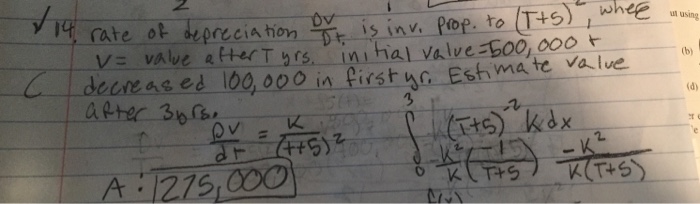 2
√ 14. rate of depreciation DV/DT. is inv. prop. to (T+5)², whee
V = value after T yrs. initial value=500,000 +
C decreased 100,000 in first yr. Estimate value
after 3yrs.
DV/dt = K/(t+5)²
3 ∫ 0 (T+5)⁻² K dx
K²/K (-1/T+5) -K²/K(T+5)
A: 275,000
ut using
(b)
(d)